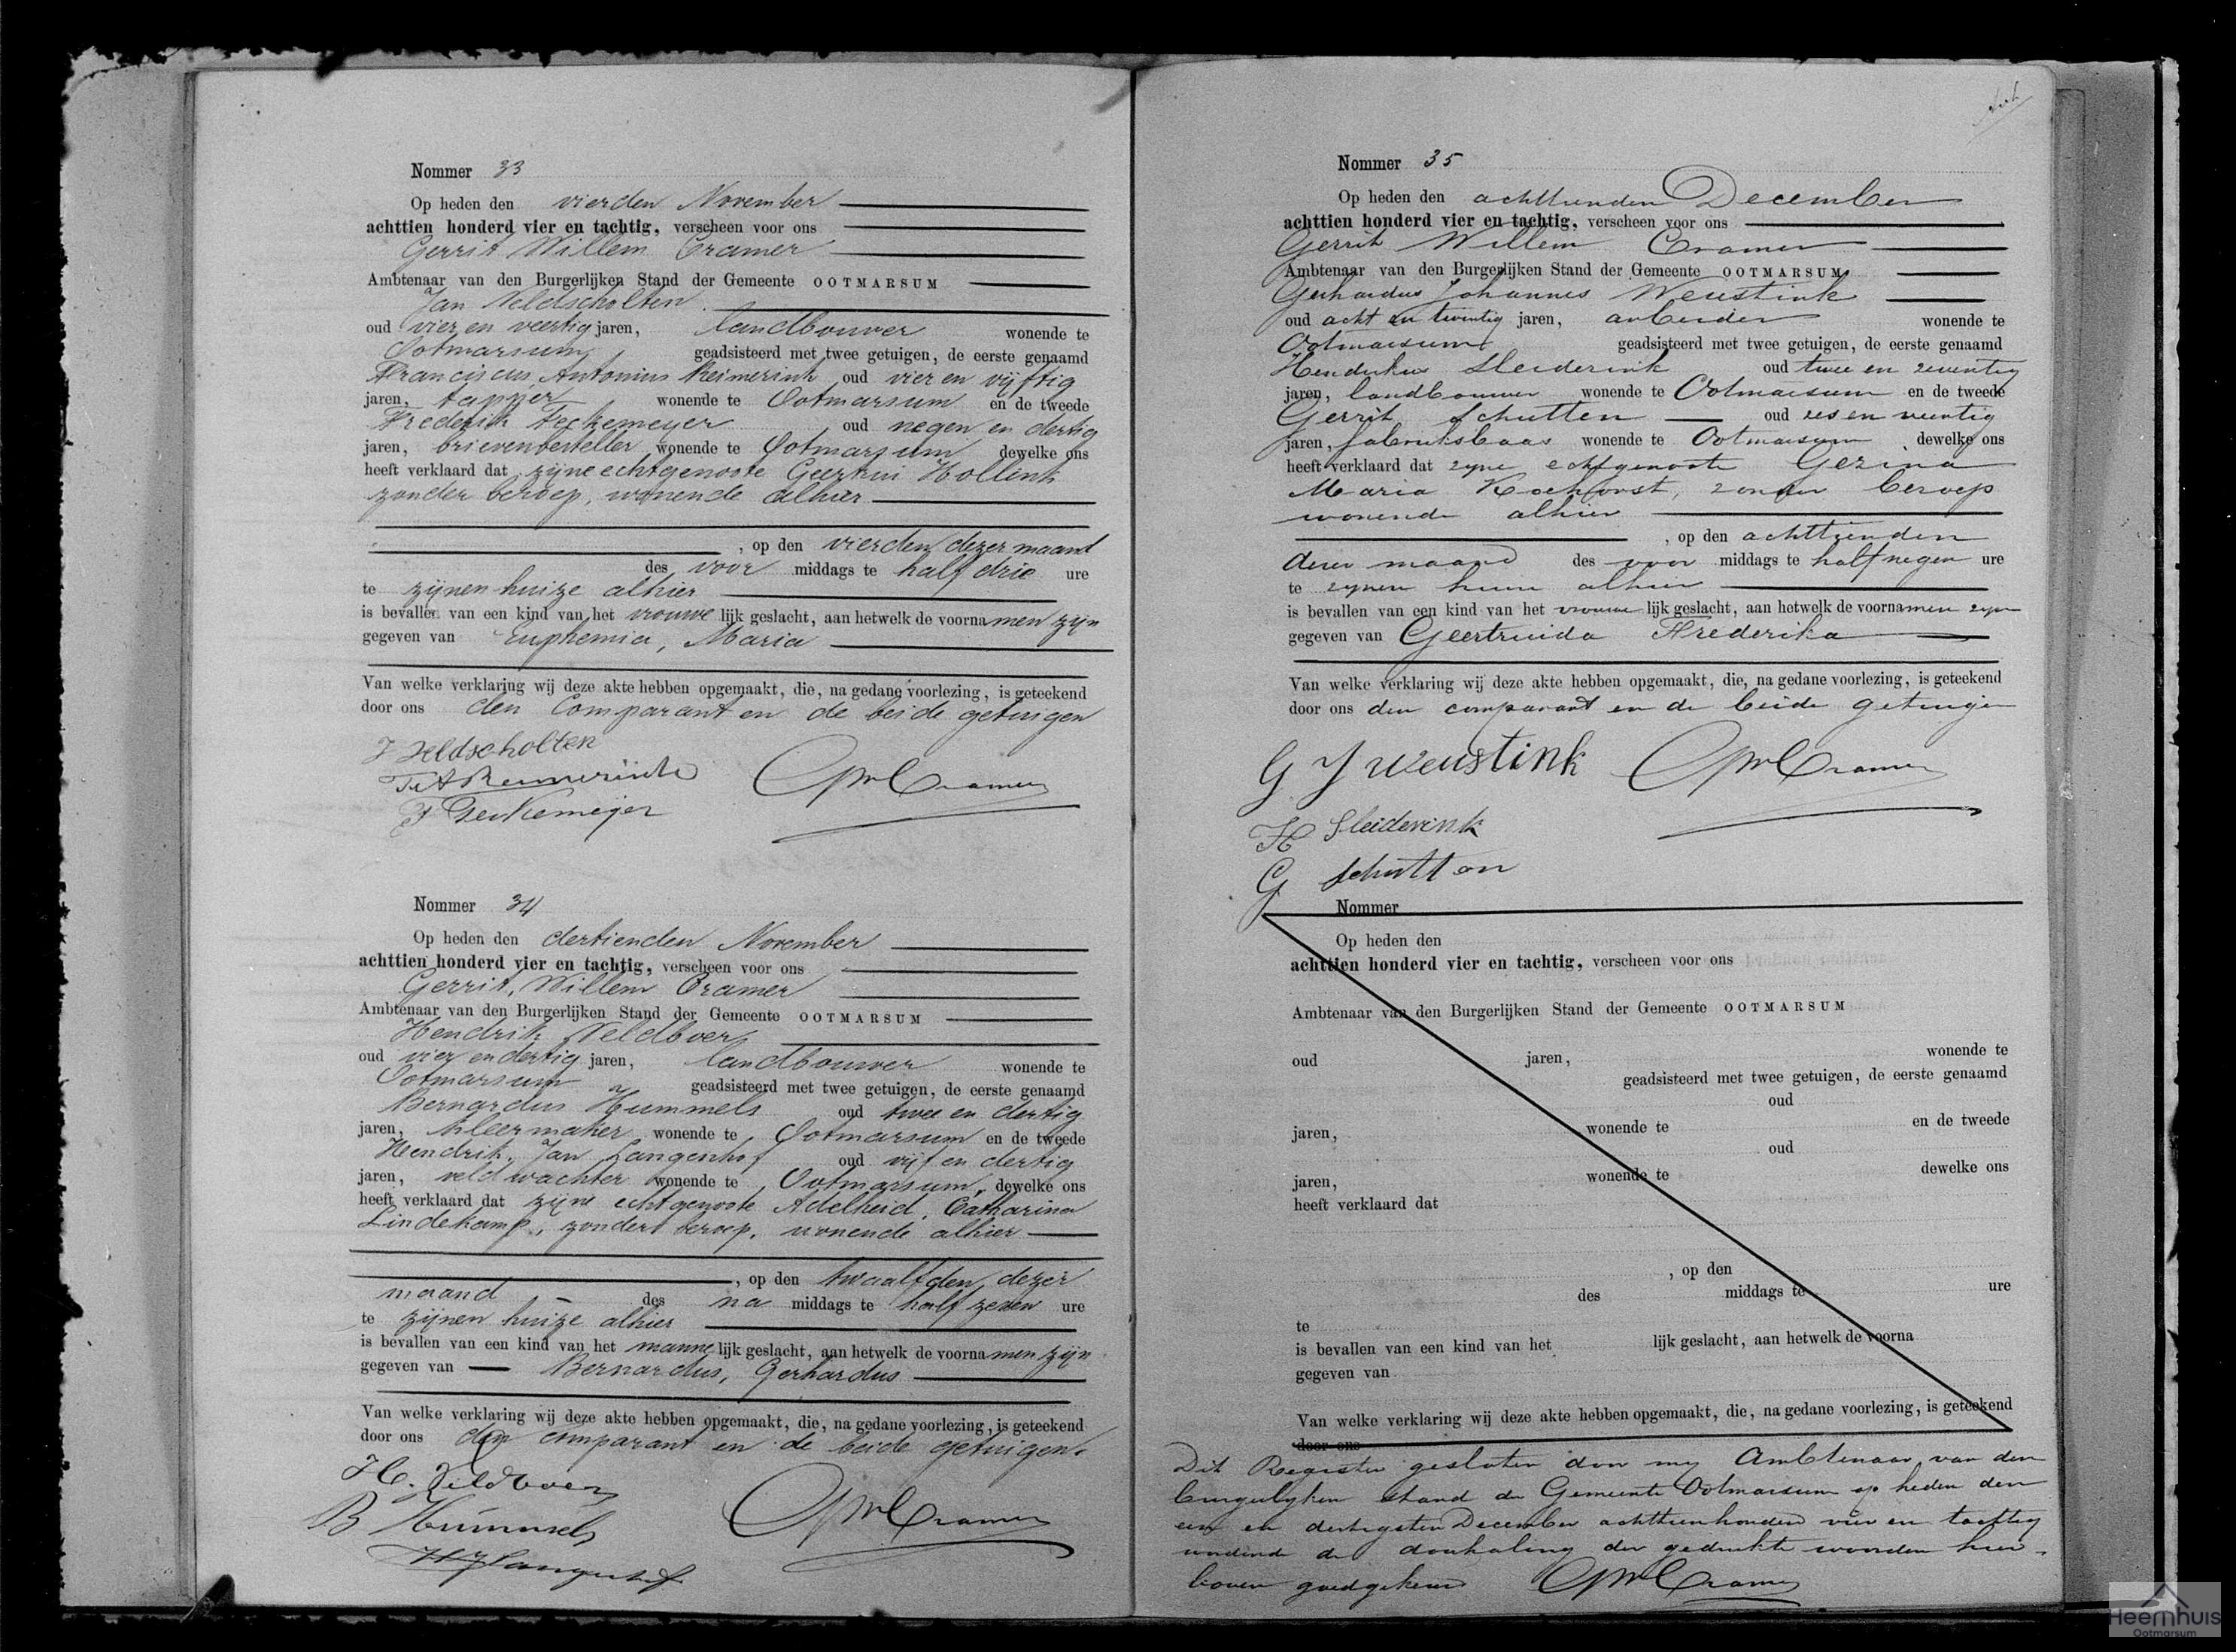 Nommer 33
Op heden den vierden November
achttien honderd vier en tachtig, verscheen voor ons
Gerrit Willem Cramer
Ambtenaar van den Burgerlijken Stand der Gemeente OOTMARSUM
Jan Veldscholten
oud vier en veertig jaren, landbouwer wonende te
Ootmarsum geadsisteerd met twee getuigen, de eerste genaamd
Franciscus Antonius Reimerink oud vier en vijftig
jaren, tapper wonende te Ootmarsum en de tweede
Frederik oud negen en dertig
jaren, brievenbesteller wonende te Ootmarsum dewelke ons
heeft verklaard dat zijne echtgenoote Hollink
zonder beroep, wonende alhier
, op den vierden dezer maand
des voor middags te half drie ure
te zijnen huize alhier
is bevallen van een kind van het vrouwelijk geslacht, aan hetwelk de voornamen zijn
gegeven van Euphemia, Maria
Van welke verklaring wij deze akte hebben opgemaakt, die, na gedane voorlezing, is geteekend
door ons den Comparant en de beide getuigen
J Veldscholten
GWCramer
Nommer 34
Op heden den dertienden November
achttien honderd vier en tachtig, verscheen voor ons
Gerrit, Willem Cramer
Ambtenaar van den Burgerlijken Stand der Gemeente OOTMARSUM
Hendrik Veldboer
oud vier en dertig jaren, landbouwer wonende te
Ootmarsum geadsisteerd met twee getuigen, de eerste genaamd
Bernardus Hummels oud twee en dertig
jaren, kleermaker wonende te Ootmarsum en de tweede
Hendrik, Jan Langenhof oud vijf en dertig
jaren, veldwachter wonende te Ootmarsum, dewelke ons
heeft verklaard dat zijne echtgenoote Adelheid, Catharina
Lindekamp, zonder beroep, wonende alhier
, op den twaalfden dezer
maand des na middags te half zeven ure
te zijnen huize alhier
is bevallen van een kind van het mannelijk geslacht, aan hetwelk de voornamen zijn
gegeven van Bernardus, Gerhardus
Van welke verklaring wij deze akte hebben opgemaakt, die, na gedane voorlezing, is geteekend
door ons den comparant en de beide getuigen.
H. Veldboer
B Hummels
GWCramer
HJLangenhof
Nommer 35
Op heden den achttienden December
achttien honderd vier en tachtig, verscheen voor ons
Gerrit Willem Cramer
Ambtenaar van den Burgerlijken Stand der Gemeente OOTMARSUM
Gerhardus Johannes Weustink
oud acht en twintig jaren, arbeider wonende te
Ootmarsum geadsisteerd met twee getuigen, de eerste genaamd
Hendrikus Sleiderink oud twee en zeventig
jaren, landbouwer wonende te Ootmarsum en de tweede
Gerrit Schutten oud zes en veertig
jaren, fabrieksbaas wonende te Ootmarsum, dewelke ons
heeft verklaard dat zijne echtgenoote Gezina
Maria Kockhorst, zonder beroep
wonende alhier
, op den achttienden
dezer maand des voor middags te half negen ure
te zijnen huize alhier
is bevallen van een kind van het vrouwelijk geslacht, aan hetwelk de voornamen zijn
gegeven van Geertruida Frederika
Van welke verklaring wij deze akte hebben opgemaakt, die, na gedane voorlezing, is geteekend
door ons den comparant en de beide getuigen
G J Weustink GWCramer
H Sleiderink
G Schutten
Nommer
Op heden den
achttien honderd vier en tachtig, verscheen voor ons
Ambtenaar van den Burgerlijken Stand der Gemeente OOTMARSUM
oud jaren, wonende te
geadsisteerd met twee getuigen, de eerste genaamd
oud
jaren, wonende te en de tweede
oud
jaren, wonende te dewelke ons
heeft verklaard dat
, op den
des middags te ure
te
is bevallen van een kind van het lijk geslacht, aan hetwelk de voorna
gegeven van
Van welke verklaring wij deze akte hebben opgemaakt, die, na gedane voorlezing, is geteekend
door ons
Dit Register gesloten door mij Ambtenaar van den
burgerlijken stand der Gemeente Ootmarsum op heden den
een en dertigsten December achttienhonderd vier en tachtig
wordende de doorhaling der gedrukte woorden hier-
boven goedgekeurd GWCramer
Heemhuis
Ootmarsum